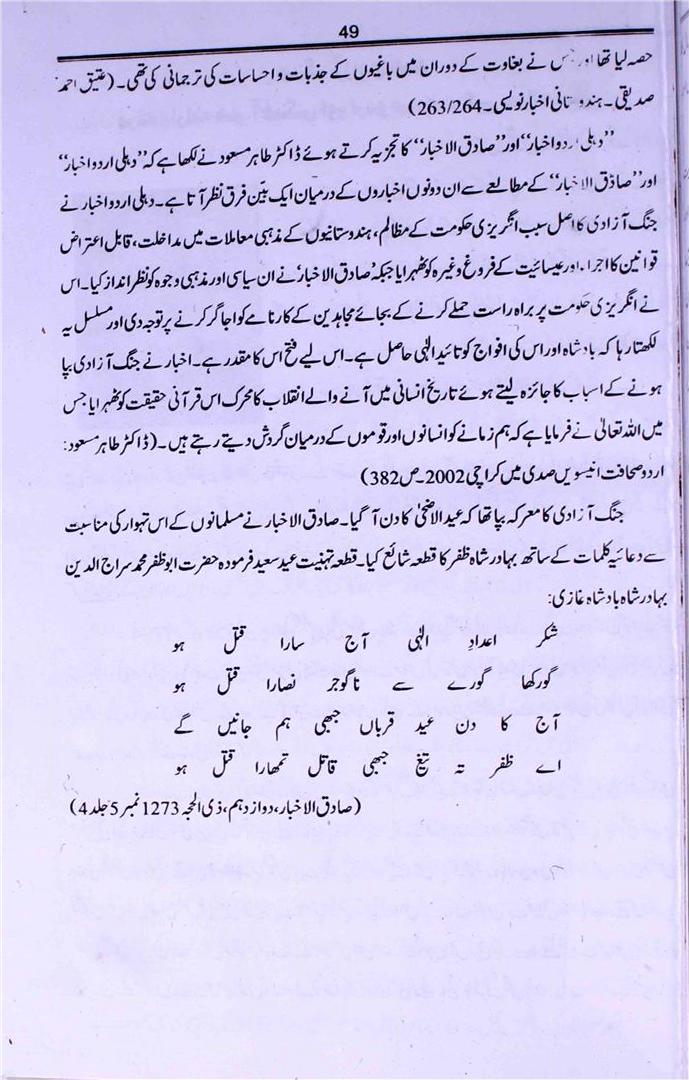 49
حصہ لیا تھا اور جس نے بغاوت کے دوران میں باغیوں کے جذبات و احساسات کی ترجمانی کی تھی۔ (عتیق احمد
صدیقی۔ ہندوستانی اخبار نویسی۔ 263/264)
”دہلی اردو اخبار“ اور ”صادق الاخبار“ کا تجزیہ کرتے ہوئے ڈاکٹر طاہر مسعود نے لکھا ہے کہ ”دہلی اردو اخبار“
اور ”صادق الاخبار“ کے مطالعے سے ان دونوں اخباروں کے درمیان ایک بیّن فرق نظر آتا ہے۔ دہلی اردو اخبار نے
جنگ آزادی کا اصل سبب انگریزی حکومت کے مظالم، ہندوستانیوں کے مذہبی معاملات میں مداخلت، قابل اعتراض
قوانین کا اجراء اور عیسائیت کے فروغ وغیرہ کو ٹھہرایا جبکہ ’صادق الاخبار‘ نے ان سیاسی اور مذہبی وجوہ کو نظر انداز کیا۔ اس
نے انگریزی حکومت پر براہ راست حملے کرنے کے بجائے مجاہدین کے کارنامے کو اجاگر کرنے پر توجہ دی اور مسلسل یہ
لکھتا رہا کہ بادشاہ اور اس کی افواج کو تائید الٰہی حاصل ہے۔ اس لیے فتح اس کا مقدر ہے۔ اخبار نے جنگ آزادی بپا
ہونے کے اسباب کا جائزہ لیتے ہوئے تاریخ انسانی میں آنے والے انقلاب کا محرک اس قرآنی حقیقت کو ٹھہرایا جس
میں اللہ تعالیٰ نے فرمایا ہے کہ ہم زمانے کو انسانوں اور قوموں کے درمیان گردش دیتے رہتے ہیں۔ (ڈاکٹر طاہر مسعود:
اردو صحافت انیسویں صدی میں کراچی 2002۔ ص 382)
جنگ آزادی کا معرکہ بپا تھا کہ عید الاضحیٰ کا دن آ گیا۔ صادق الاخبار نے مسلمانوں کے اس تہوار کی مناسبت
سے دعائیہ کلمات کے ساتھ بہادر شاہ ظفر کا قطعہ شائع کیا۔ قطعہ تہنیت عید سعید فرمودہ حضرت ابوظفر محمد سراج الدین
بہادر شاہ بادشاہ غازی:
شکر اعدادِ الٰہی آج سارا قتل ہو
گورکھا گورے سے تا گوجر نصارا قتل ہو
آج کا دن عید قرباں جبھی ہم جانیں گے
اے ظفر تہ تیغ جبھی قاتل تمھارا قتل ہو
(صادق الاخبار، دوازدہم، ذی الحجہ 1273 نمبر 5 جلد 4)